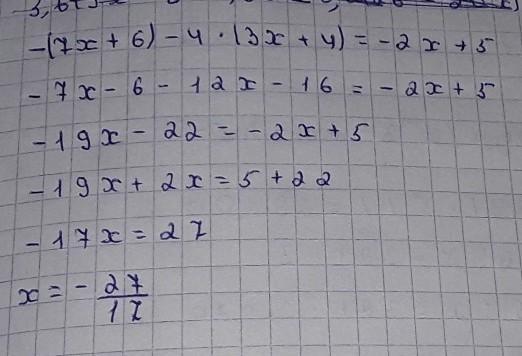 -(7x + 6) - 4 · (3x + 4) = -2x + 5
-7x - 6 - 12x - 16 = -2x + 5
-19x - 22 = -2x + 5
-19x + 2x = 5 + 22
-17x = 27
x = - 27/17